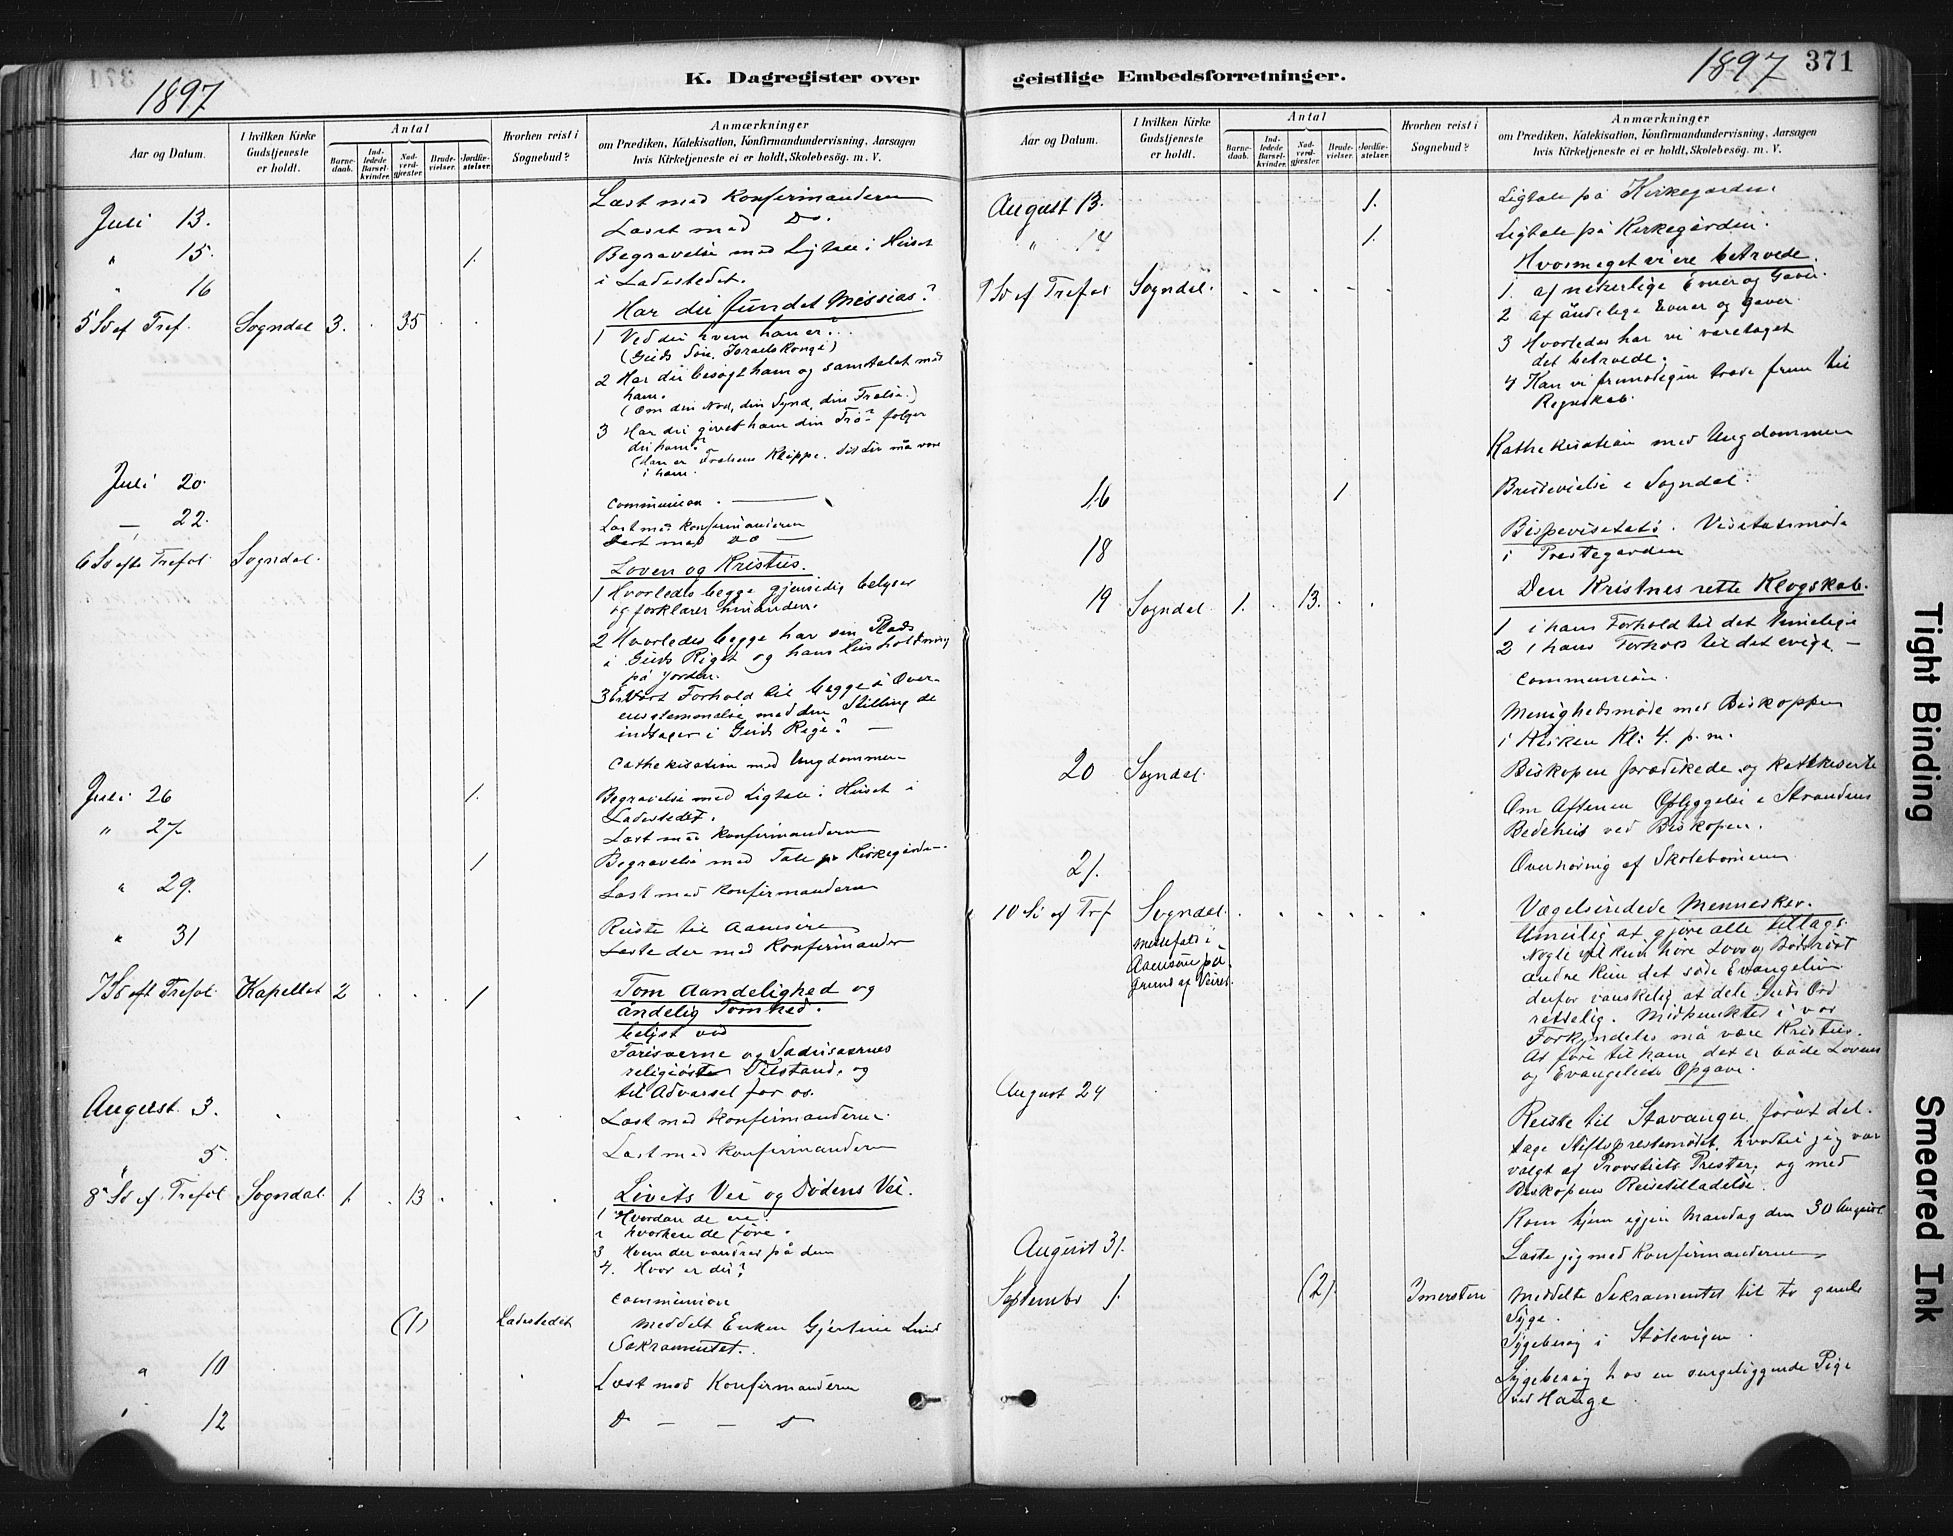 1897
K. Dagregister over
Aar og Datum.
I hvilken Kirke
Gudstjeneste
er holdt.
Antal
Barne-
daab.
Ind-
ledede
Barsel-
kvinder.
Nad-
verd-
gjæster.
Brude-
vielser.
Jordfæ-
stelser.
Hvorhen reist i
Sognebud?
Anmærkninger
om Prædiken, Katekisation, Konfirmandundervisning, Aarsagen
hvis Kirketjeneste ei er holdt, Skolebesög. m. V.
Juli 13. Læst med Konfirmanderne
" 15. Læst med Do.
" 16 1. Begravelse med Ligtale i Huset
i Ladestedet.
5 Sö ef Tref. Sogndal 3. 35 Har du fundet Messias?
1 Ved du hvem han er?
(Guds Sön, Israels Konge)
2 Har du besögt ham og samtalet med
ham.
(Om din Nöd, din Synd, din Frelse.)
3 Har du givet ham din Tro? fölger
du ham?
(Han er Frelsens Klippe. dit Liv må være
i ham.
communion.
Juli 20. Læst med Konfirmanderne
— 22. Læst med Do —
6 Sö efte Trefol. Sogndal. Loven og Kristus.
1 Hvorledes begge gjensidig belyser
og forklarer hinanden.
2 Hvorledes begge har sin Plads
i Guds Riget og hans Husholdning
på Jorden.
3 Er Vort Forhold til begge i Over-
ensstemmelse med den Stilling de
indtager i Guds Rige? —
Cathekisation med Ungdommen
Juli 26 1. Begravelse med Ligtale i Huset i
Ladestedet.
" 27. Læst med Konfirmanderne
1 Begravelse med Tale på Kirkegården.
" 29. Læst med Konfirmanderne
" 31 Reiste til Aamsire
Læste der med Konfirmander
7 Sö eft Trefol. Kapellet 2 1 Tom Aandelighed og
åndelig Tomhed.
belyst ved
Farisæerne og Sadusæernes
religiöse Tilstand, og
til Advarsel for os.
August. 3. Læst med Konfirmanderne.
" 5. Læst med Konfirmanderne
8 Sö ef. Trefol Sogndal. 1. 13 Livets Vei og Dödens Vei.
1 Hvordan de ere.
2 hvorhen de före.
3 Hvem der vandrer på dem
4. Hvor er du?
communion
(1) Ladestedet meddelt Enken Gjertine Lund
Sakramentet.
" 10 Læst med Konfirmanderne
" 12 D — — D
geistlige Embedsforretninger.
1897 371
Aar og Datum.
I hvilken Kirke
Gudstjeneste
er holdt.
Antal
Barne-
daab.
Ind-
ledede
Barsel-
kvinder.
Nad-
verd-
gjæster.
Brude-
vielser.
Jordfæ-
stelser.
Hvorhen reist i
Sognebud?
Anmærkninger
om Prædiken, Katekisation, Konfirmandundervisning, Aarsagen
hvis Kirketjeneste ei er holdt, Skolebesög. m. V.
August 13. 1. Ligtale på Kirkegården.
" 14 1. Ligtale på Kirkegården.
9 Sö ef Trefol Sogndal. Hvormeget vi ere betroede.
1. af naturlige Evner og Gaver.
2 af åndelige Evner og Gaver.
3 Hvorledes har vi varetaget
det betroede.
4 Kan vi frimodigen træde frem til
Regnskab.
Kathekisation med Ungdommen
16 1 Brudevielse i Sogndal.
18 Bispevisitats. Visitatsmöde
i Præstegården
19 Sogndal. 1. 13. Den Kristnes rette Klogskab.
1 i hans Forhold til det timelige
2 i hans Forhold til det evige —
communion.
Menighedsmöde med Biskoppen
i Kirken Kl: 4. p. m.
20 Sogndal. Biskopen prædikede og kathekiserte
Om Aftenen Opbyggelse i Strandens
Bedehus ved Biskopen.
21. Overhöring af Skolebörnene
10 Sö ef Trf Sogndal. Vægelsindede Mennesker.
messefald i
Aamsire på
Grund af Veiret.
Umulig at gjöre alle tillags.
Nogle vil kun höre Lovs og Bods röst
andre kun det söde Evangelium
derfor vanskelig at dele Guds Ord
rettelig. Midpunktet i vor
Forkyndelse må være Kristus.
At före til ham, det er både Lovens
og Evangeliets Opgave.
August 24 Reiste til Stavanger forat del-
tage Stiftspræstemödet, hvortil jeg var
valgt af Provstiets Prester, og med
Biskopens Reisetilladelse.
Kom hjem igjen Mandag den 30 August
August 31. Læste jeg med Konfirmanderne
September 1. (2) Imerstein Meddelte Sakramentet til to gamle
Syge.
Sygebesög i Stölevigen.
Sygebesög hos en sengeliggende Pige
ved Hauge
Tight Binding
Smeared Ink